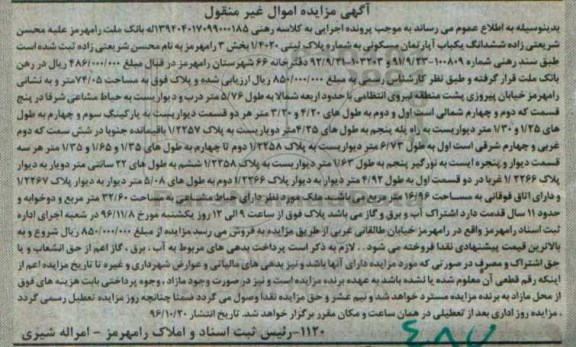 آگهی مزایده اموال غیر منقول
بدینوسیله به اطلاع عموم می رساند به موجب پرونده اجرایی به کلاسه رهنی ۱۳۹۲۰۴۰۱۷۰۹۹۰۰۰۱۸۵له بانک ملت رامهرمز علیه محسن
شریعتی زاده ششدانگ یکباب آپارتمان مسکونی به شماره پلاک ثبتی ۱/۴۰۲۰ بخش ۳ رامهرمز به نام محسن شریعتی زاده ثبت شده است
طبق سند رهنی شماره ۱۰۰۸۰۹-۹۱/۹/۲۳ و ۱۰۳۲۰۳-۹۲/۹/۲۱ دفترخانه ۶۶ شهرستان رامهرمز در قبال مبلغ ۴۸۶/۰۰۰/۰۰۰ ریال در رهن
بانک ملت قرار گرفته و طبق نظر کارشناس رسمی به مبلغ ۸۵۰/۰۰۰/۰۰۰ ریال ارزیابی شده و پلاک فوق به مساحت ۷۴/۰۵متر و به نشانی
رامهرمز خیابان پیروزی پشت منطقه نیروی انتظامی با حدود اربعه شمالا به طول ۵/۷۶ متر درب و دیواریست به حیاط مشاعی شرقا در پنج
قسمت که دوم و چهارم شمالی است اول و دوم به طول های ۴/۲۰ و ۳/۲۰ متر هر دو قسمت دیواریست به پارکینگ سوم و چهارم به طول
های ۱/۲۵ و ۱/۳۰ متر دیواریست به راه پله پنجم به طول های ۴/۳۵متر دیواریست به پلاک ۱/۲۲۵۷ باقیمانده جنوبا در شش سمت که دوم
غربی و چهارم شرقی است اول به طول ۶/۷۳ متر دیواریست به پلاک ۱/۲۲۵۸ دوم تا چهارم به طول های ۱/۳۵ و ۱/۶۵ و ۱/۳۵ متر هر سه
قسمت دیوار و پنجره ایست به نورگیر پنجم به طول ۱/۶۳ متر دیواریست به پلاک ۱/۲۲۵۸ ششم به طول های ۲۲ سانتی متر دویار به دیوار
پلاک ۱/۲۲۶۶ غربا در دو قسمت اول به طول ۴/۹۲ متر دیوار به دیوار پلاک ۱/۲۲۶۶ دوم به طول های ۵/۰۸ متر دیوار به دیوار پلاک ۱/۲۲۶۷
و دارای اتاق فوقانی به مساحت ۱۶/۹۶ متر مربع می باشید ملک مورد نظر دارای حیاط مشاعی به مساحت ۳۲/۶۰ متر مربع و دوخوابه و
حدود ۱۱ سال قدمت دارد اشتراک آب و برق و گاز می باشد پلاک فوق از ساعت ۹ الی ۱۲ روز یکشنبه مورخ ۹۶/۱۱/۸ در شعبه اجرای اداره
ثبت اسناد رامهرمز واقع در رامهرمز خیابان طالقانی غربی از طریق مزایده به فروش می رسد مزایده از مبلغ ۸۵۰/۰۰۰/۰۰۰ ریال شروع و به
بالاترین قیمت پیشنهادی نقدا فروخته می شود . . لازم به ذکر است پرداخت بدهی های مربوط به آب ، برق ، گاز اعم از حق انشعاب و یا
حق اشتراک و مصرف در صورتی که مورد مزایده دارای آنها باشد و نیز بدهی های مالیاتی و عوارض شهرداری و غیره تا تاریخ مزایده اعم از
اینکه رقم قطعی آن معلوم شده یا نشده باشد به عهده برنده مزایده است و نیز در صورت وجود مازاد ، وجوه پرداختی بابت هزینه های فوق
از محل مازاد به برنده مزایده مسترد خواهد شد و نیم عشر و حق مزایده نقدا وصول می گردد ضمنا چنانچه روز مزایده تعطیل رسمی گردد
، مزایده روز اداری بعد از تعطیلی در همان ساعت و مکان مقرر برگزار خواهد شد. تاریخ انتشار ۹۶/۱۰/۲۰
۱۱۲۰-رئیس ثبت اسناد و املاک رامهرمز - امراله شیری